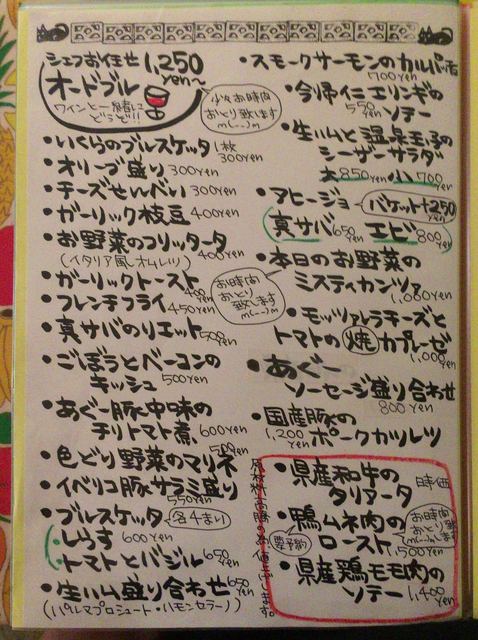 シェフお任せ 1,250yen〜
オードブル
ワインと一緒に
どうぞ!!
少々お時間
おとり致します
m(__)m
・いくらのブルスケッタ 1枚 300yen
・オリーブ盛り 300yen
・チーズせんべい 300yen
・ガーリック枝豆 400yen
・お野菜のフリッタータ
(イタリア風オムレツ) 400yen
・ガーリックトースト 400yen
・フレンチフライ 450yen
お時間
おとり
致します
m(__)m
・真サバのリエット 500yen
・ごぼうとベーコンの
キッシュ 500yen
・あぐー豚中味の
チリトマト煮 600yen
・色どり野菜のマリネ 500yen
・イベリコ豚サラミ盛り 550yen
・ブルスケッタ (各4まい)
・しらす 600yen
・トマトとバジル 650yen
・生ハム盛り合わせ 650yen
(パルマプロシュート・ハモンセラーノ)
・スモークサーモンのカルパッチョ
700yen
・今帰仁エリンギの
550yen ソテー
・生ハムと温泉玉子の
シーザーサラダ
大850yen 小700yen
・アヒージョ バケット+250yen
(真サバ650yen エビ800yen)
・本日のお野菜の
ミスティカンツァ
1,000yen
・モッツァレラチーズと
トマトの焼カプレーゼ
1,000yen
・あぐー
ソーセージ盛り合わせ
800yen
・国産豚の
1,200yen ポークカツレツ
・県産和牛の 時価
タリアータ
・鴨ムネ肉の
要予約 ロースト 1,500yen
お時間
おとり
致します
m(__)m
・県産鶏モモ肉の
ソテー 1,400yen